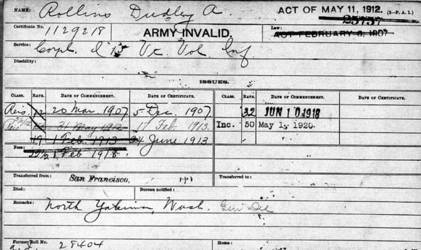 NAME: Rollins Dudley A. ACT OF MAY 11, 1912. (S.-P. A. I.)
Certificate No. 1129218 ARMY INVALID. Law: ACT FEBRUARY 6, 1907
Service: Corpl. 1st Vt Vol Inf
Disability:
ISSUES.
CLASS. RATE. DATE OF COMMENCEMENT. DATE OF CERTIFICATE. CLASS. RATE. DATE OF COMMENCEMENT. DATE OF CERTIFICATE.
20 Mar 1907 5 Dec. 1907 32 JUN 10 1918
31 May 1912 Feb 1913 Inc. 50 May 1, 1920.
19 1 Feb 1913 24 June 1913
Feb 1918
Transferred from: San Francisco, Transferred to:
Died: Bureau notified:
Remarks: North Yakima, Wash. Gen Del
Former Roll No. 28404